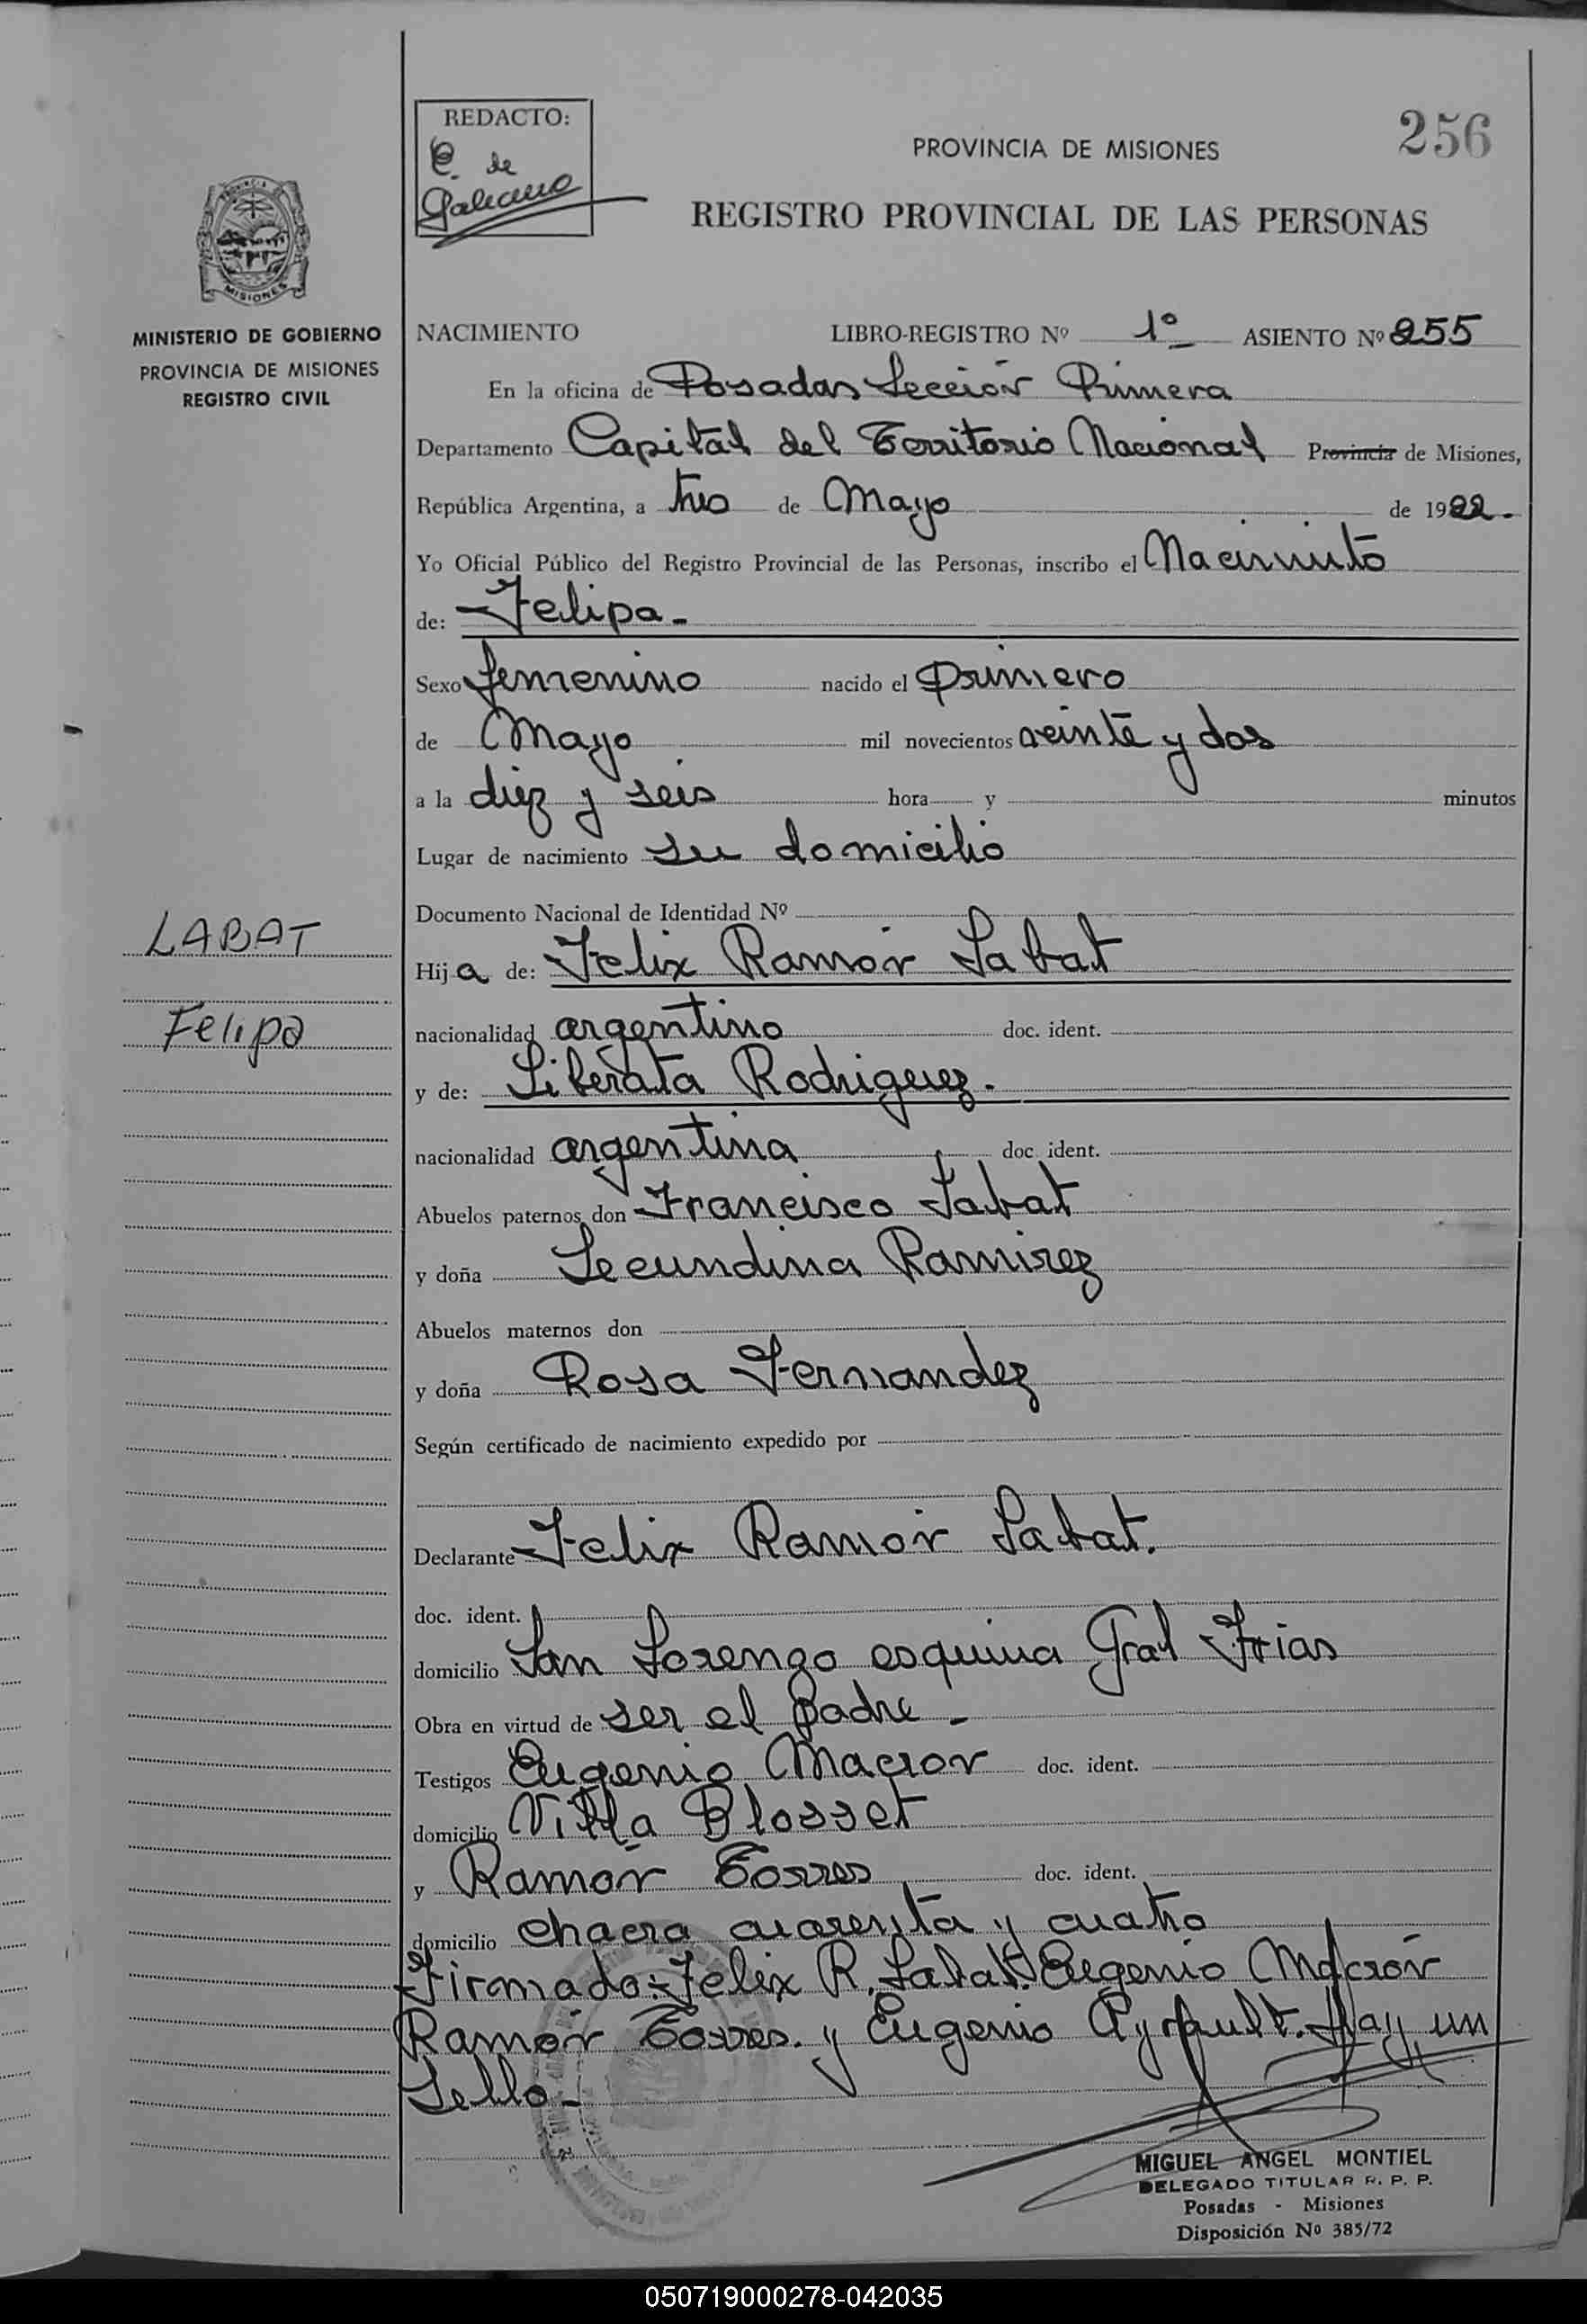 REDACTO:
C. de
Galeano
256
PROVINCIA DE MISIONES
REGISTRO PROVINCIAL DE LAS PERSONAS
MISIONES
MINISTERIO DE GOBIERNO
PROVINCIA DE MISIONES
REGISTRO CIVIL
NACIMIENTO LIBRO-REGISTRO Nº 1º ASIENTO Nº 255
En la oficina de Posadas Sección Primera
Departamento Capital del Territorio Nacional Provincia de Misiones,
República Argentina, a tres de Mayo de 1922.
Yo Oficial Público del Registro Provincial de las Personas, inscribo el Nacimiento
de: Felipa.-
Sexo femenino nacido el primero
de Mayo mil novecientos veinte y dos
a la diez y seis hora y minutos
Lugar de nacimiento su domicilio
Documento Nacional de Identidad Nº
LABAT
Hija de: Felix Ramón Labat
Felipa
nacionalidad argentino doc. ident.
y de: Liberata Rodriguez.
nacionalidad argentina doc. ident.
Abuelos paternos don Francisco Labat
y doña Secundina Ramirez
Abuelos maternos don
y doña Rosa Fernandez
Según certificado de nacimiento expedido por
Declarante Felix Ramón Labat.
doc. ident.
domicilio San Lorenzo esquina Gral Frias
Obra en virtud de ser el padre -
Testigos Eugenio Macron doc. ident.
domicilio Villa Blosset
y Ramón Torres doc. ident.
domicilio chacra cuarenta y cuatro
Firmado: Felix R. Labat. Eugenio Macrón
Ramón Torres. y Eugenio Ayrault. Hay un
Sello -
MIGUEL ANGEL MONTIEL
DELEGADO TITULAR R. P. P.
Posadas - Misiones
Disposición Nº 385/72
050719000278-042035